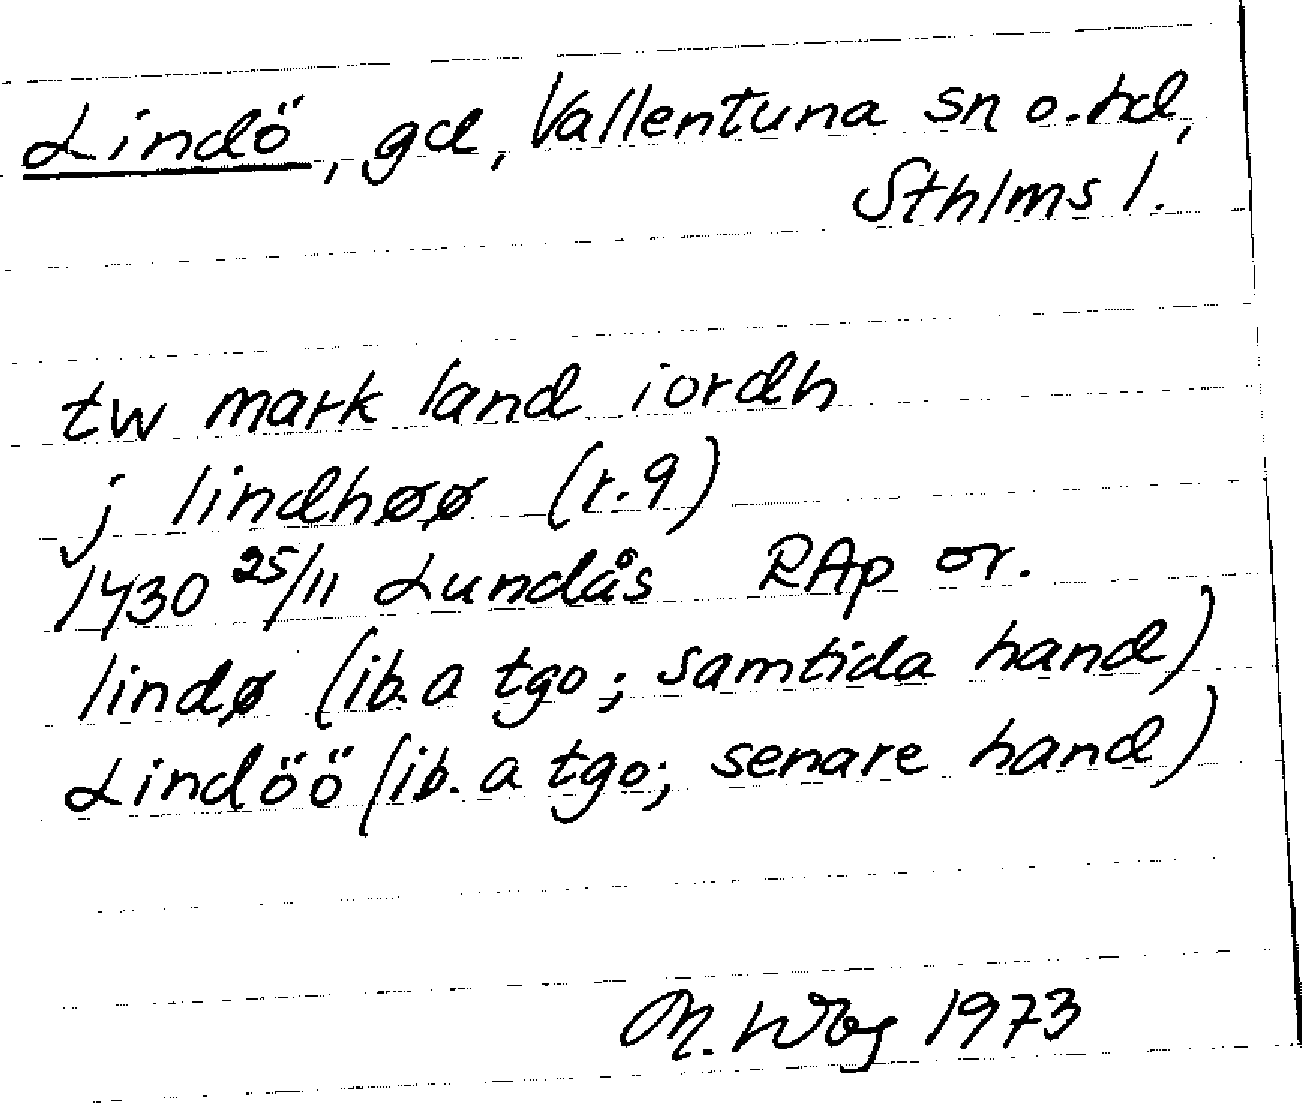 Lindö, gd, Vallentuna sn o. hd,
Sthlms l.
tw mark land iordh
j lindhøø (r. 9)
1430 25/11 Lundås RAp or.
lindø (ib. a tgo; samtida hand)
Lindöö (ib. a tgo; senare hand)
M. 1973